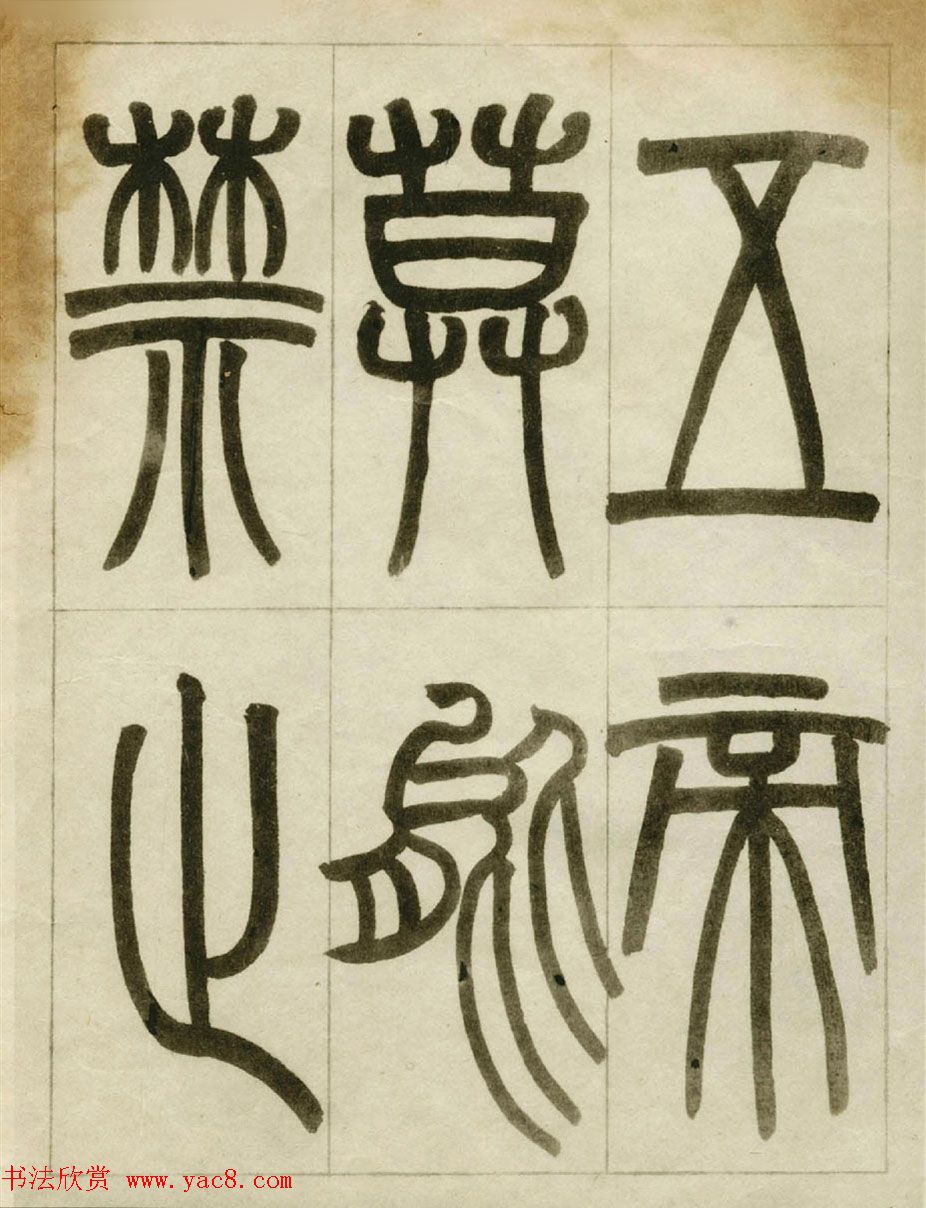 五帝
莫能
禁止
书法欣赏 www.yac8.com